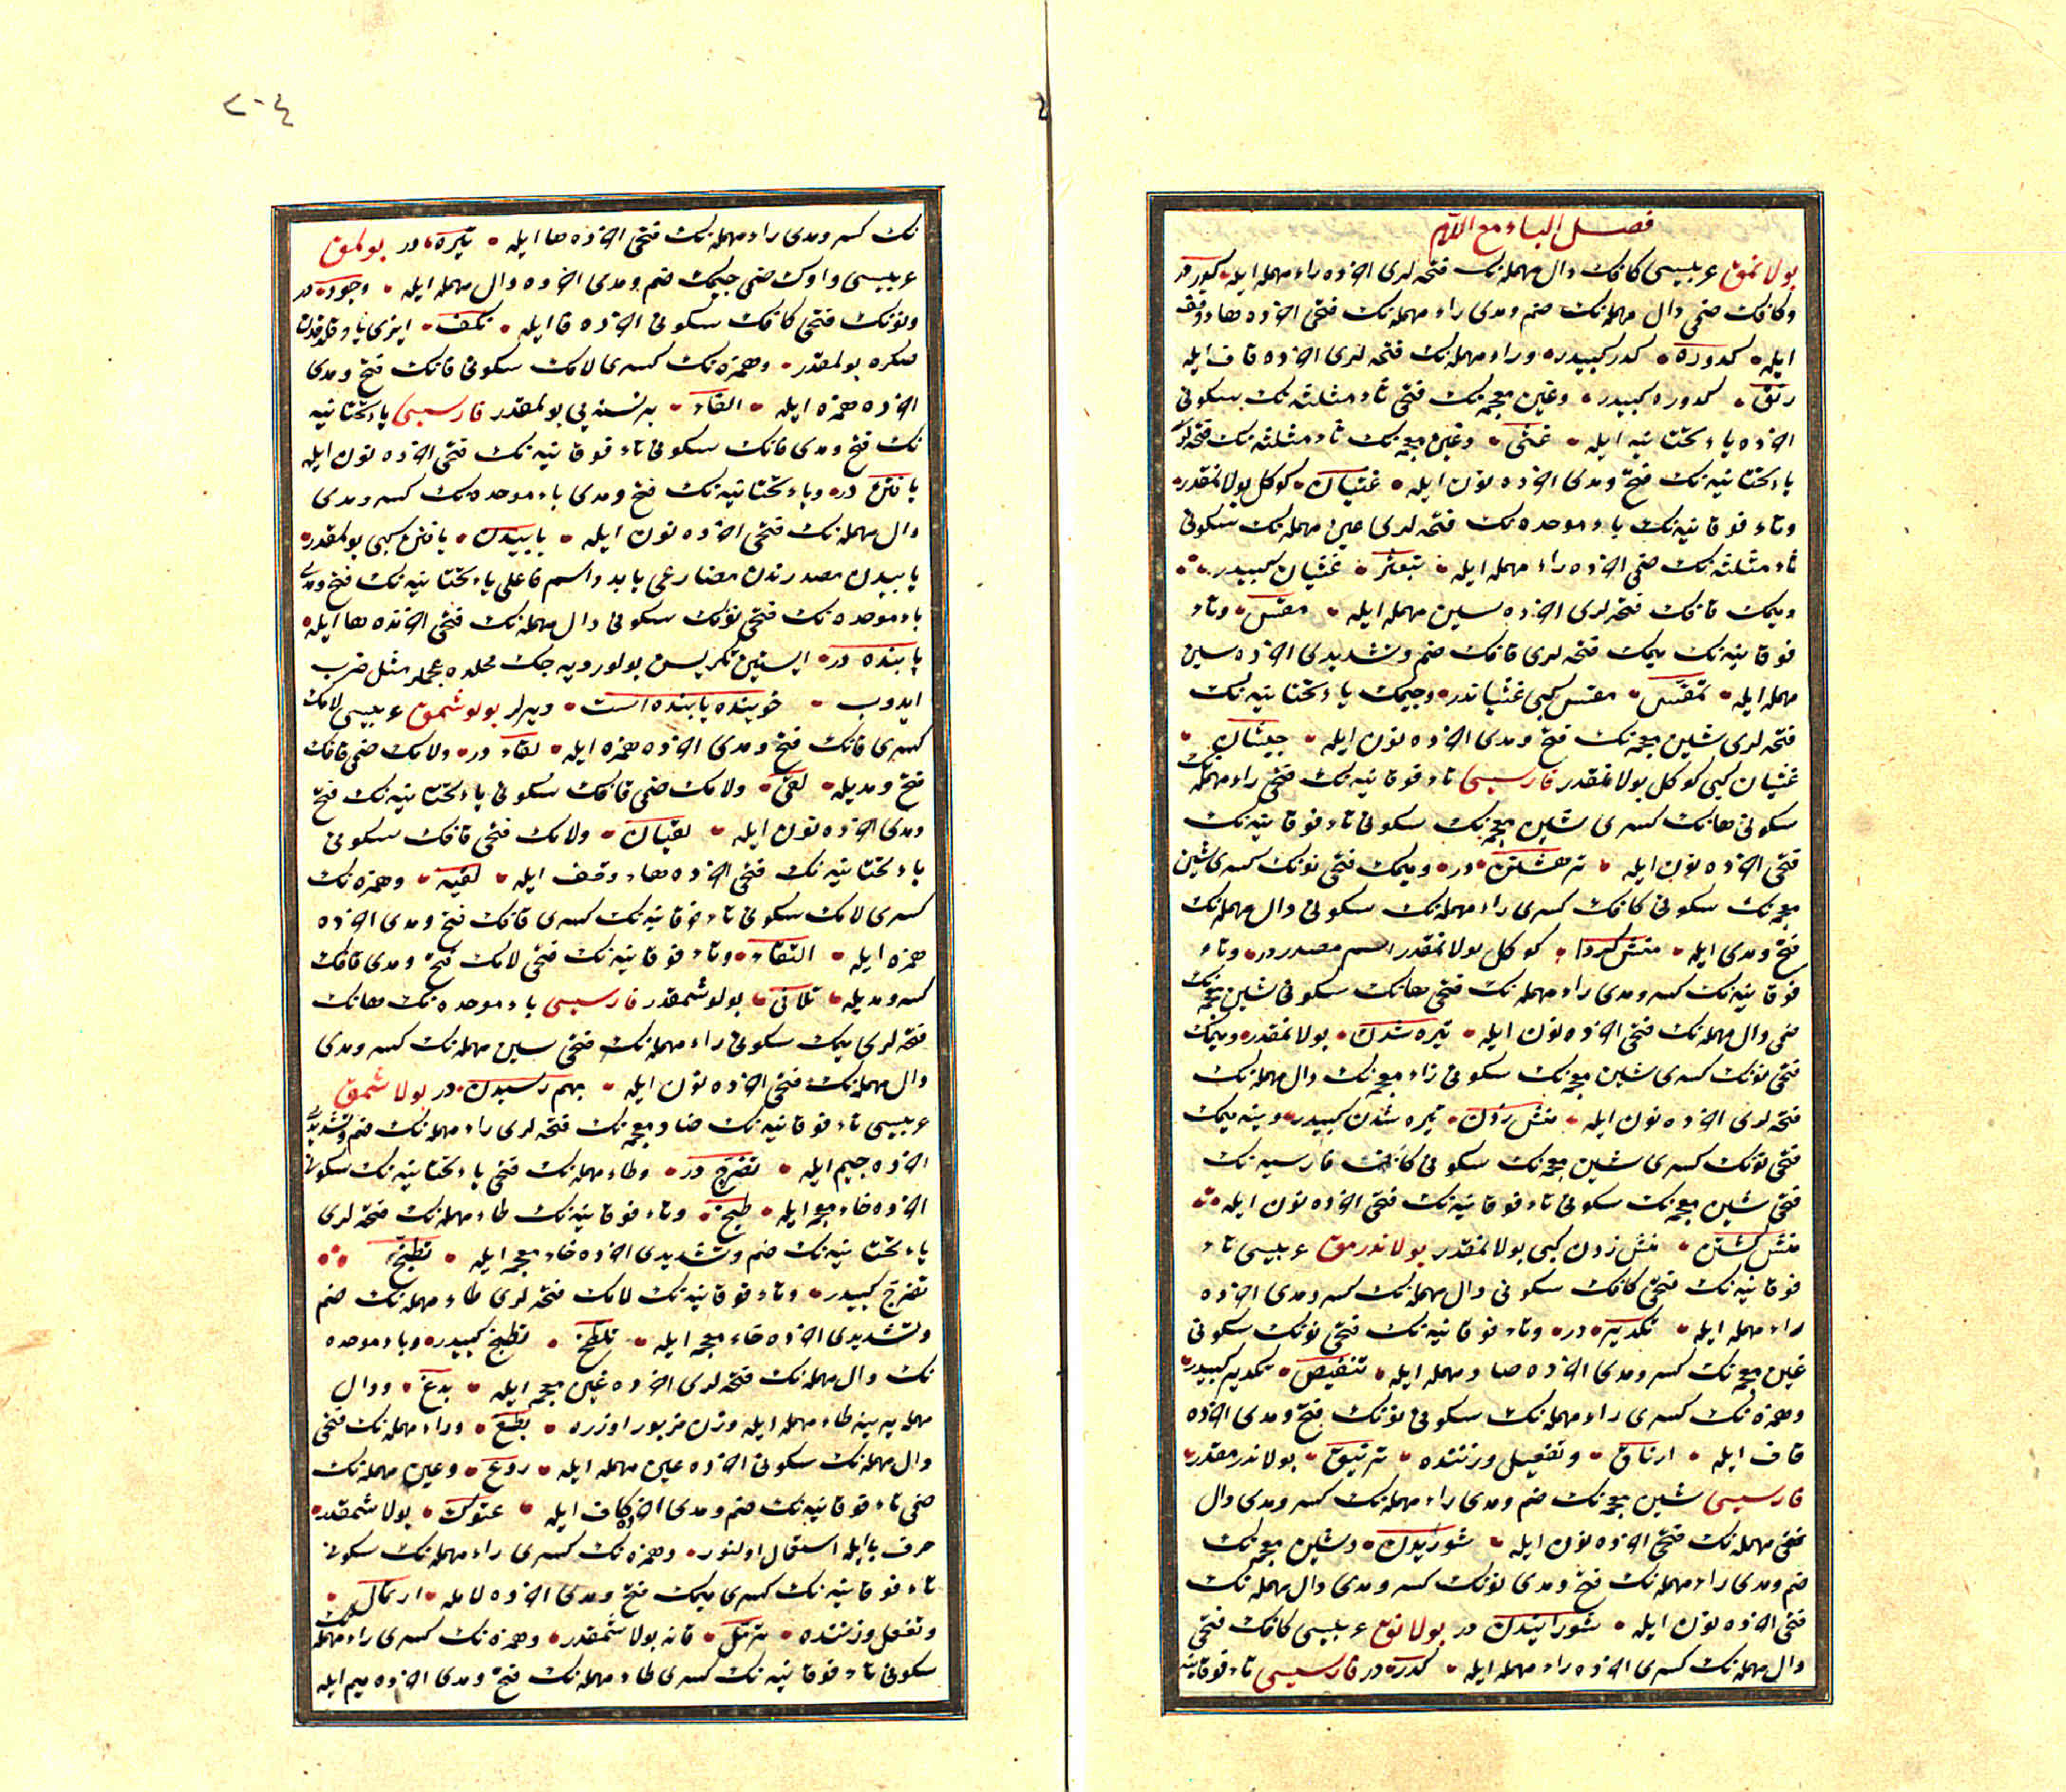 فصل الباء مع اللام
بولانمق عربیسی کافک دال مهمله‌نک فتحه‌لری اخرده راء مهمله ایله کدر در
وکافک ضمی دال مهمله‌نک ضم ومدی راء مهمله‌نک فتحی اخرده هاء وقف
ایله کدورة کدر کبیدر وراء مهمله‌نک فتحه‌لری اخرده قاف ایله
رنق کدوره کبیدر وغین معجمه‌نک فتحی ثاء مثلثه‌نک سکونی
اخرده یاء تحتانیه ایله غثی وغین معجمه‌نک ثاء مثلثه‌نک فتحه‌لری
یاء تحتانیه‌نک فتح ومدی اخرده نون ایله غثیان کوکل بولانمقدر
وتاء فوقانیه‌نک باء موحده‌نک فتحه‌لری عین مهمله‌نک سکونی
ثاء مثلثه‌نک ضمی اخرده راء مهمله ایله تبعثر غثیان کبیدر
ومیمک قافک فتحه‌لری اخرده سین مهمله ایله مقس وتاء
فوقانیه‌نک میمک فتحه‌لری قافک ضم وتشدیدی اخرده سین
مهمله ایله تمقس مقس کبی غثیاندر وجیمک یاء تحتانیه‌نک
فتحه‌لری شین معجمه‌نک فتح ومدی اخرده نون ایله جیشان
غثیان کبی کوکل بولانمقدر فارسیسی تاء فوقانیه‌نک فتحی راء مهمله‌نک
سکونی هانک کسری شین معجمه‌نک سکونی تاء فوقانیه‌نک
فتحی اخرده نون ایله ترهشتن در ومیمک فتحی نونک کسری شین
معجمه‌نک سکونی کافک کسری راء مهمله‌نک سکونی دال مهمله‌نک
فتح ومدی ایله منش کردا کوکل بولانمقدر اسم مصدردر وتاء
فوقانیه‌نک کسر ومدی راء مهمله‌نک فتحی هانک سکونی شین معجمه‌نک
ضمی دال مهمله‌نک فتحی اخرده نون ایله تیره شدن بولانمقدر ومیمک
فتحی نونک کسری شین معجمه‌نک سکونی زاء معجمه‌نک دال مهمله‌نک
فتحه‌لری اخرده نون ایله منش زدن تیره شدن کبیدر وینه میمک
فتحی نونک کسری شین معجمه‌نک سکونی کاف فارسیه‌نک
فتحی شین معجمه‌نک سکونی تاء فوقانیه‌نک فتحی اخرده نون ایله
منش کشتن منش زدن کبی بولانمقدر بولاندرمق عربیسی تاء
فوقانیه‌نک فتحی کافک سکونی دال مهمله‌نک کسر ومدی اخرده
راء مهمله ایله تکدیر در وتاء فوقانیه‌نک فتحی نونک سکونی
غین معجمه‌نک کسر ومدی اخرده صاد مهمله ایله تنغیص تکدیر کبیدر
وهمزه‌نک کسری راء مهمله‌نک سکونی نونک فتح ومدی اخرده
قاف ایله ارناق وتفعیل وزننده ترنیق بولاندرمقدر
فارسیسی شین معجمه‌نک ضم ومدی راء مهمله‌نک کسر ومدی دال
مهمله‌نک فتحی اخرده نون ایله شوریدن وشین معجمه‌نک
ضم ومدی راء مهمله‌نک فتح ومدی نونک کسر ومدی دال مهمله‌نک
فتحی اخرده نون ایله شورانیدن در بولانق عربیسی کافک فتحی
دال مهمله‌نک کسری اخرده راء مهمله ایله کدر در فارسیسی تاء فوقانیه
٢٠٤
نک کسر ومدی راء مهمله‌نک فتحی اخرده ها ایله تیره در بولمق
عربیسی واوک ضمی جیمک ضم ومدی اخرده دال مهمله ایله وجود در
ونونک فتحی کافک سکونی اخرده فا ایله نکف
صکره بولمقدر وهمزه‌نک کسری لامک سکونی فانک فتح ومدی
اخرده همزه ایله الفاء بر نسنه‌یی بولمقدر فارسیسی یاء تحتانیه
نک فتح ومدی فانک سکونی تاء فوقانیه‌نک فتحی اخرده نون ایله
یافتن در ویاء تحتانیه‌نک فتح ومدی باء موحده‌نک کسر ومدی
دال مهمله‌نک فتحی اخرده نون ایله یابیدن یافتن کبی بولمقدر
یابیدن مصدرندن مضارعی یابد واسم فاعلی یاء تحتانیه‌نک فتح ومدی
باء موحده‌نک فتحی نونک سکونی دال مهمله‌نک فتحی اخرنده ها ایله
یابنده در ایستین تکریسن بولور دیه‌جک محلده عجملر مثل ضرب
ایدوب جوینده یابنده است دیرلر بولوشمق عربیسی لامک
کسری قافک فتح ومدی اخرده همزه ایله لقاء در ولامک ضمی قافک
فتح ومدیله لقی ولامک ضمی قافک سکونی یاء تحتانیه‌نک فتح
ومدی اخرده نون ایله لقیان ولامک فتحی قافک سکونی
یاء تحتانیه‌نک فتحی اخرده هاء وقف ایله لقیه وهمزه‌نک
کسری لامک سکونی تاء فوقانیه‌نک کسری قافک فتح ومدی اخرده
همزه ایله التقاء وتاء فوقانیه‌نک فتحی لامک فتح ومدی قافک
کسر ومدیله تلاقی بولوشمقدر فارسیسی باء موحده‌نک هانک
فتحه‌لری میمک سکونی راء مهمله‌نک فتحی سین مهمله‌نک کسر ومدی
دال مهمله‌نک فتحی اخرده نون ایله بهم رسیدن در بولاشمق
عربیسی تاء فوقانیه‌نک ضاد معجمه‌نک فتحه‌لری راء مهمله‌نک ضم وتشدیدی
اخرده جیم ایله تضرج در وطاء مهمله‌نک فتحی یاء تحتانیه‌نک سکونی
اخرده خاء معجمه ایله طیخ وتاء فوقانیه‌نک طاء مهمله‌نک فتحه‌لری
یاء تحتانیه‌نک ضم وتشدیدی اخرده خاء معجمه ایله تطیخ
تضرج کبیدر وتاء فوقانیه‌نک لامک فتحه‌لری طاء مهمله‌نک ضم
وتشدیدی اخرده خاء معجمه ایله تلطخ تطیخ کبیدر وباء موحده
نک دال مهمله‌نک فتحه‌لری اخرده غین معجمه ایله بدغ ودال
مهمله یرینه طاء مهمله ایله وزن مزبور اوزره بطغ وراء مهمله‌نک فتحی
دال مهمله‌نک سکونی اخرده عین مهمله ایله ردع وعین مهمله‌نک
ضمی تاء فوقانیه‌نک ضم ومدی اخرده کاف ایله عتوک بولاشمقدر
حرف با ایله استعمال اولنور وهمزه‌نک کسری راء مهمله‌نک سکونی
تاء فوقانیه‌نک کسری میمک فتح ومدی اخرده لامله ارتمال
وتفعل وزننده ترمل قانه بولاشمقدر وهمزه‌نک کسری راء مهمله‌نک
سکونی تاء فوقانیه‌نک کسری طاء مهمله‌نک فتح ومدی اخرده میم ایله